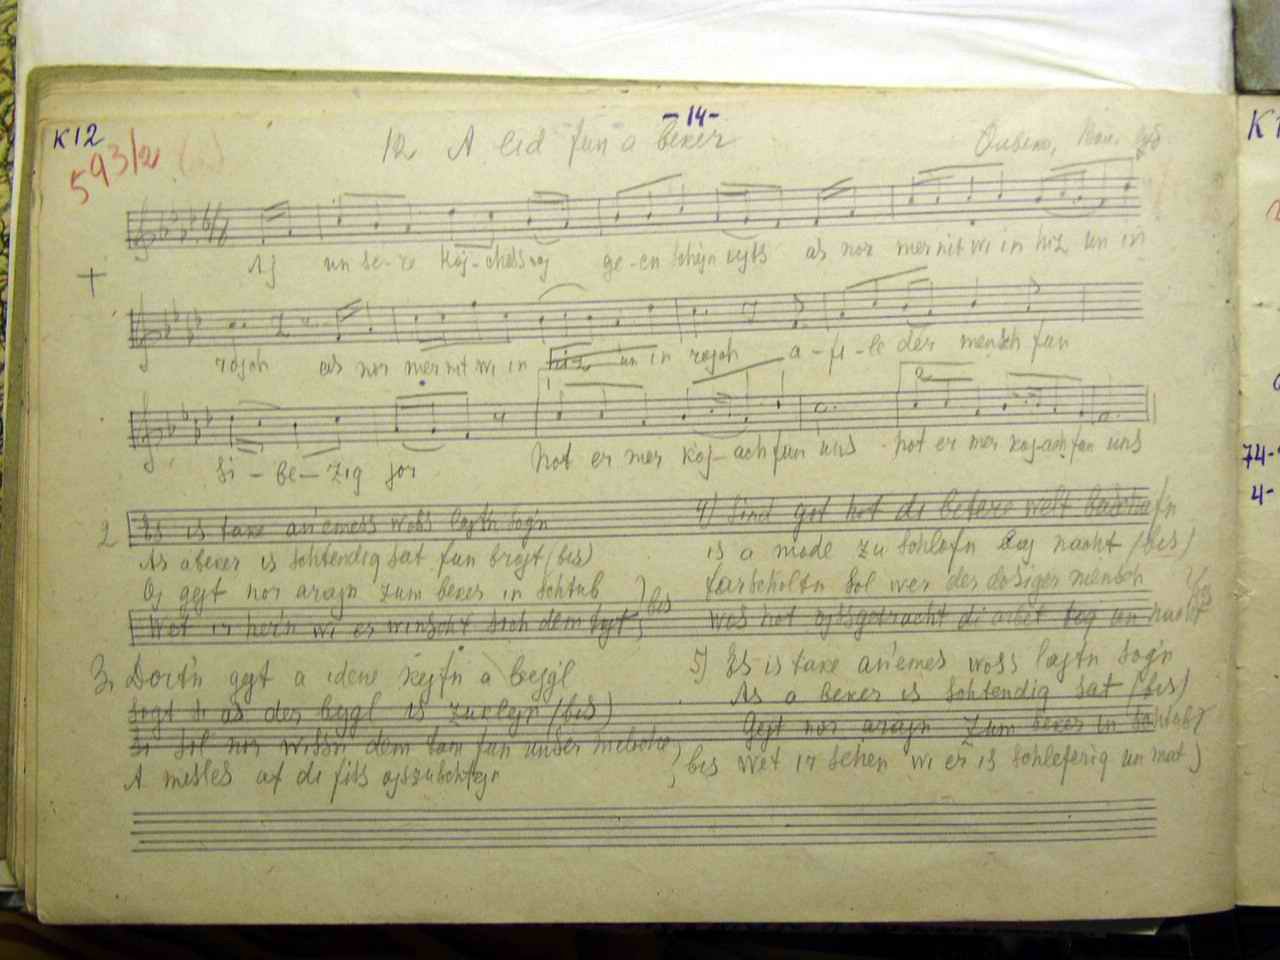 K12
-14-
593/2
12 A lid fun a beker
Aj un se-re koj-chess oj ge-en schojn ojss as nor mer nit wi in hiz un in
rojch as nor mer nit wi in hiz un in rojch a - fi - le der mensch fun
si - be - zig jor hot er mer koj - ach fun uns hot er mer koj-ach fun uns
1 2
2 Ess is take an'emess woss lajt'n sog'n
As a beker is schtendig sat fun brojt (bis)
Oj gejt nor arajn zum beker in schtub
Wet ir her'n wi er winscht sich dem tojt } bis
3, Dort'n gejt a idene kejfn a bejgl
sogt si as der bejgl is zu klejn (bis)
si sol nor wissn dem tam fun unser meloche
A messles af di fiss ojszuschtejn } bis
4) Sind got hot di welt
is a mode zu schlofn baj nacht (bis)
farscholtn sol wer der dosiger mensch
wos hot ojssgetracht di arbet tog un nacht } bis
5) Ess is take an'emes woss lajtn sog'n
As a beker is schtendig sat (bis)
Gejt nor arajn zum beker in schtub
Wet ir sehen wi er is schleferig un mat
K
74-
4-